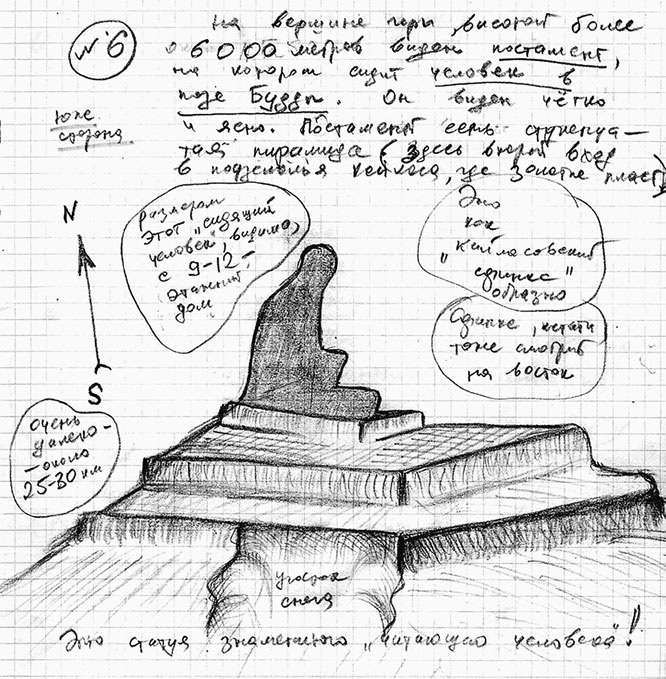 №6
На вершине горы, высотой более
6000 метров виден постамент,
на котором сидит человек в
позе Будды. Он виден чётко
и ясно. Постамент есть ступенча-
тая пирамида (здесь второй вход
в подземелья Кайласа, где золотые пласт)
сторона
N
S
размером
этот "сидящий
человек", видимо,
с 9-12-
этажный
дом
Это
как
"Кайласовский
сфинкс"
образно
Сфинкс, кстати
тоже смотрит
на восток
очень
далеко -
- около
25-30 км
участок
снега
Это статуя знаменитого "читающего человека"!